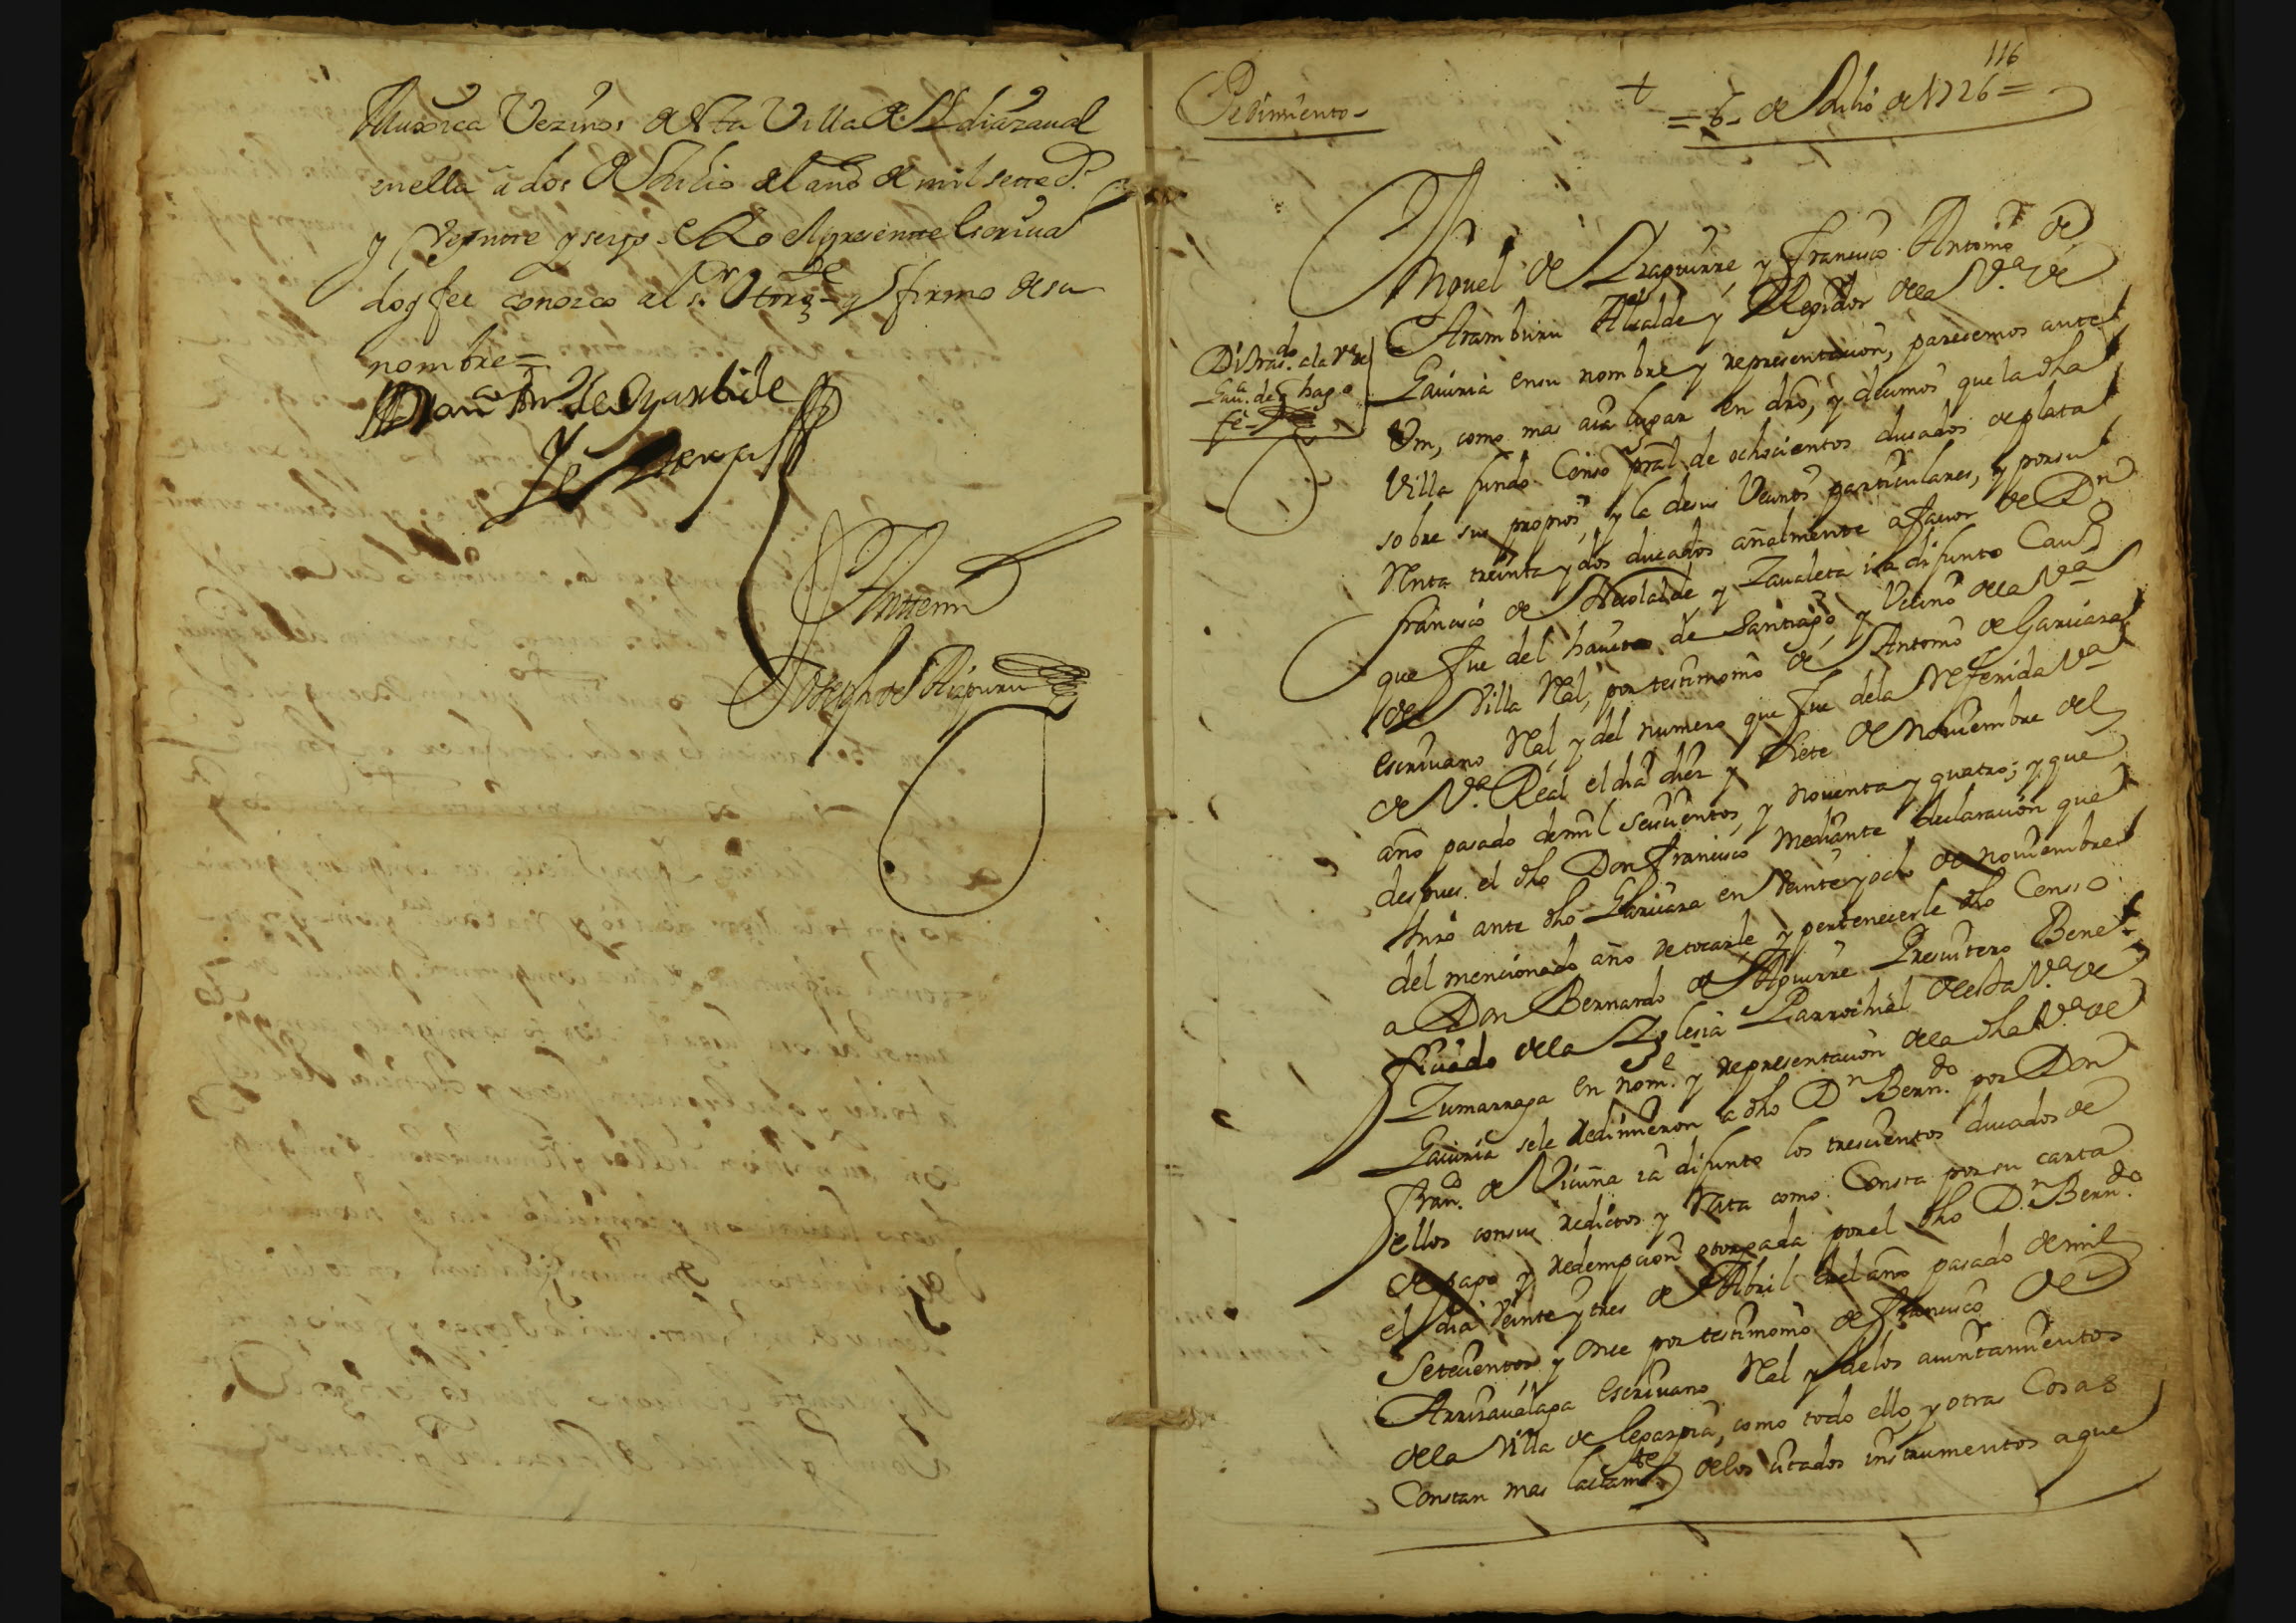 Muxica Vezinos desta Villa de
en ella a dos de Julio del año de mil sete Ds.
y veynte y seys = E Yo el presente Escriua
doy fee conozco al s.r Otorg.te y firmo de su
nombre =
Fran.co An.o de Oyarbide
Antte mi
Joseph de Aizpuru
116
Pedimiento -
+
= 6 - de Julio de 1726 =
Miguel de Yzaguirre y Francisco Antonio de
Aramburu Alcalde y Regidor dela V.a de
Gauiria en su nombre y representacion, parecemos ante
Vm, como mas aia lugar en dro, y decimos que la dha
Villa fundo Censo pral de ochocientos ducados de plata
sobre sus propios, y la de sus Vecinos particulares, y por su
Renta treinta y dos ducados añalmente a fauor de Dn
francisco de Necolalde y Zaualeta ia difunto Cau.o
que fue del hauito de Santiago, y Vecino dela V.a
de Villa Real, por testimonio de Antonio de Garicaza
escriuano Real, y del numero que fue dela Referida V.a
de V.a Real el dia diez y siete de Nouiembre del
año pasado de mil seiscientos, y nouenta y quatro; y que
despues el dho Don Francisco mediante declaracion que
hizo ante dho Garicaza en Veinte y ocho de nouiembre
del mencionado año de tocarle y pertenecerle dho Censso
a Don Bernardo de Aguirre Presuitero Bene
ficiado dela Yglesia Parrochial de esta V.a de
Zumarraga en nom.e y representacion dela dha V.a de
Gauiria se le redimieron a dho Dn Bern.do por Don
Fran.co de Vicuña ia difunto los trescientos ducados de
ellos con sus reditos y Rata como Consta por su carta
de pago y redempcion otorgada por el dho D.n Bern.do
el dia Veinte y tres de Abril del año pasado de mil
Setecientos y once por testimonio de Francisco de
Arrizaualaga escriuano Real y delos aiuntamientos
dela Villa de Cegarpia, como todo ello, y otras Cosas
Constan mas lactam.te delos citados instrumentos a que
Di tras.do a la V.a de
Gau.a de q hago
fe -